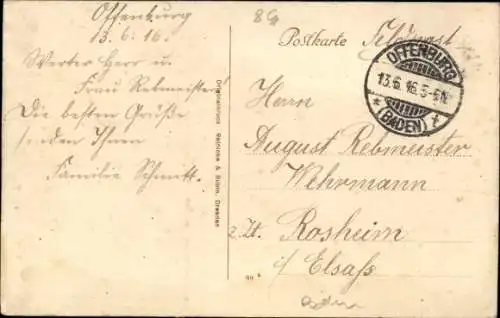 Offenburg
13.6.16.
Werter Herr u.
Frau Rebmeister!
Die besten Grüße
senden Ihnen
Familie Schmitt.
Originaldruck Reinicke & Rubin, Dresden
86
Postkarte Feldpost
OFFENBURG
13.6.16.5-6N.
* (BADEN) *
Herrn
August Rebmeister
Wehrmann
z. Zt. Rosheim
i/ Elsaß